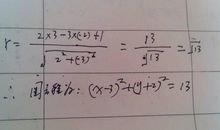 r = |2×3-3×(-2)+1| / √(2²+(-3)²) = 13/√13 = √13
∴ 圆方程为: (x-3)²+(y+2)²=13